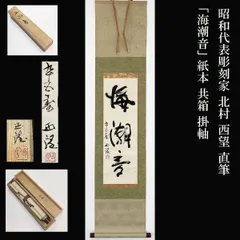 昭和代表彫刻家 北村 西望 直筆
「海潮音」紙本 共箱 掛軸
海潮音
西望